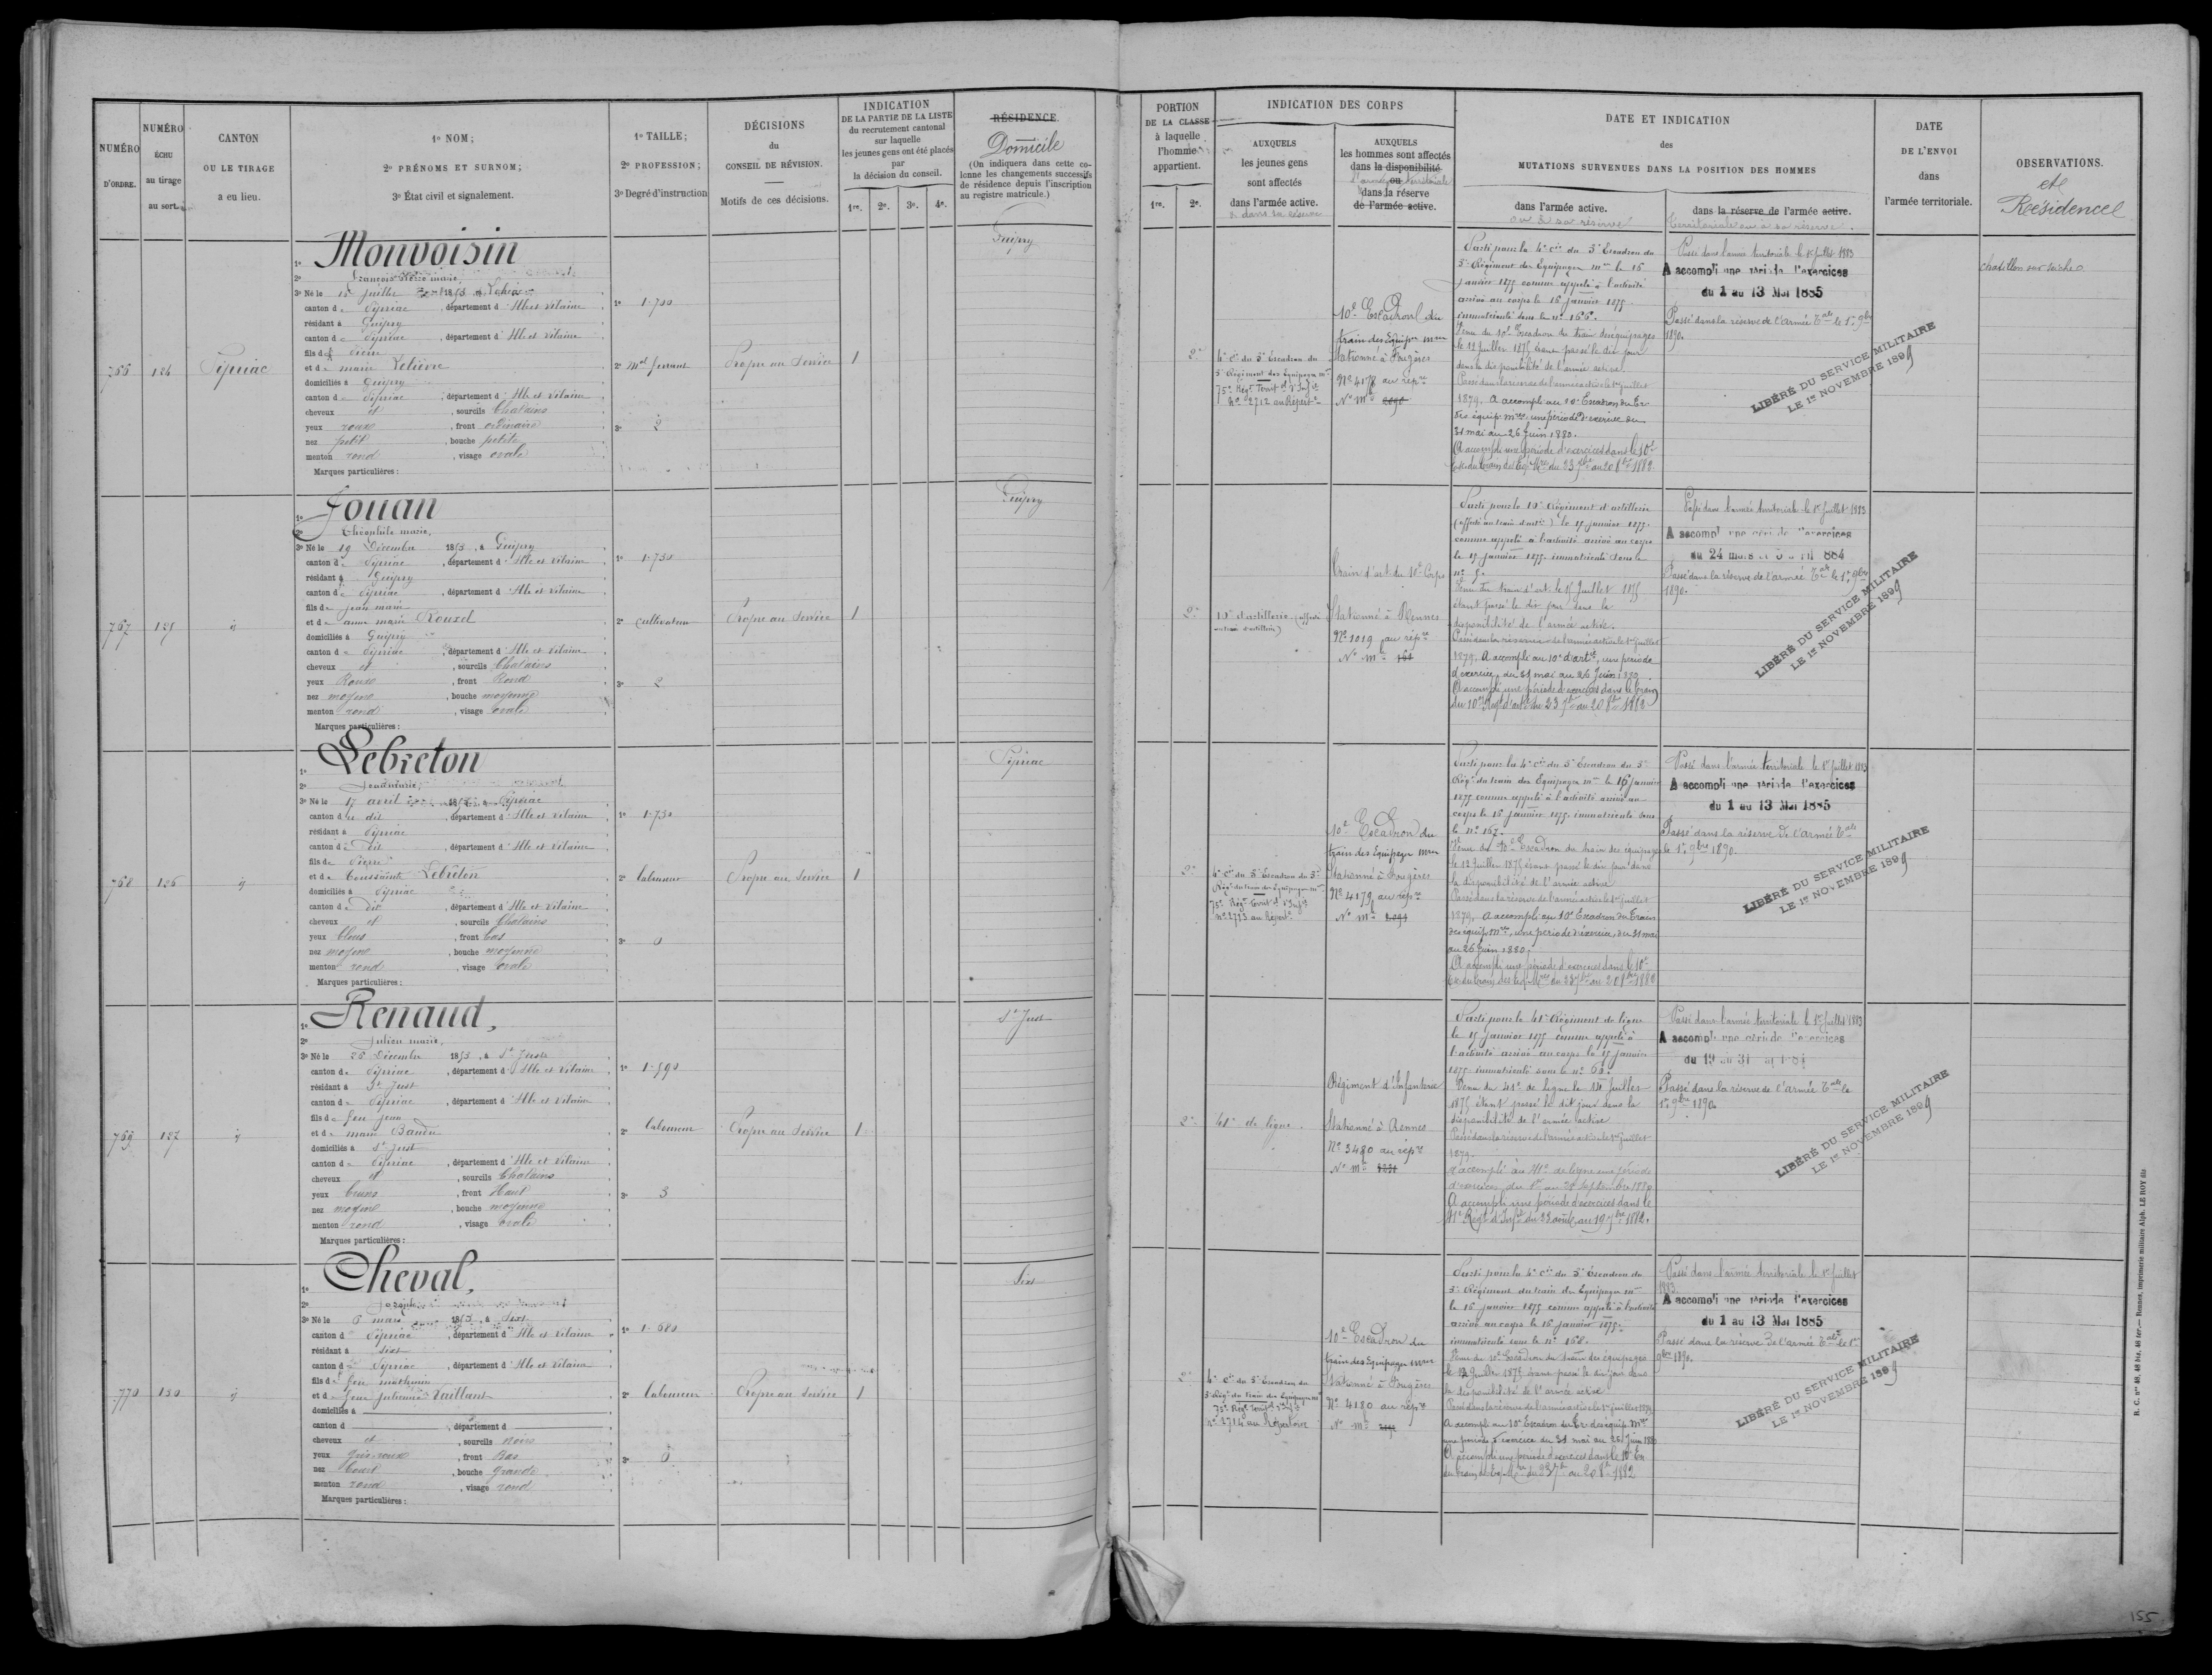 NUMÉRO
D'ORDRE.
NUMÉRO
ÉCHU
au tirage
au sort.
CANTON
OU LE TIRAGE
a eu lieu.
1º NOM;
2º PRÉNOMS ET SURNOM;
3º État civil et signalement.
1º TAILLE;
2º PROFESSION;
3º Degré d'instruction
DÉCISIONS
du
CONSEIL DE RÉVISION.
Motifs de ces décisions.
INDICATION
DE LA PARTIE DE LA LISTE
du recrutement cantonal
sur laquelle
les jeunes gens ont été placés
par
la décision du conseil.
1re. 2e. 3e. 4e.
RÉSIDENCE.
Domicile
(On indiquera dans cette co-
lonne les changements successifs
de résidence depuis l'inscription
au registre matricule.)
PORTION
DE LA CLASSE
à laquelle
l'homme
appartient.
1re. 2e.
INDICATION DES CORPS
AUXQUELS
les jeunes gens
sont affectés
dans l'armée active.
& dans sa réserve
AUXQUELS
les hommes sont affectés
dans la disponibilité
ou
l'armée territoriale
dans la réserve
de l'armée active.
DATE ET INDICATION
des
MUTATIONS SURVENUES DANS LA POSITION DES HOMMES
dans l'armée active.
ou à sa réserve
dans la réserve de l'armée active.
territoriale ou à sa réserve.
DATE
DE L'ENVOI
dans
l'armée territoriale.
OBSERVATIONS.
et
Residence
766
124
Pipriac
1º Monvoisin
2º François Pierre marie,
3º Né le 15 Juillet 1853, à Loheac
canton de Pipriac, département d'Ille et Vilaine
résidant à Guipry
canton de Pipriac, département d'Ille et Vilaine
fils de Pierre
et de marie Lelievre
domiciliés à Guipry
canton de Pipriac, département d'Ille et Vilaine
cheveux et, sourcils Chatains
yeux roux, front ordinaire
nez petit, bouche petite
menton rond, visage ovale
Marques particulières :
1º 1.700
2º Md ferrant
3º 2
Propre au Service
1
Guipry
2e
4e Cie du 3e Escadron du
3e Régiment des Equipages mres
75e Régt Territ d'Infie
No 2712 au Répert
10e Escadron du
train des Equipes mres
Stationné à Fougères
No 4178 au répre
No Mle 2090
Parti pour la 4e Cie du 3e Escadron du
3e Régiment des Equipages mres le 16
Janvier 1875 comme appelé à l'activité
arrivé au corps le 16 Janvier 1875.
immatriculé sous le no 166.
Venu du 10e Escadron du train des équipages
le 12 Juillet 1875 étant passé le dit jour
dans la disponibilité de l'armée active.
Passé dans la réserve de l'armée active le 1er Juillet
1879. A accompli au 10e Escadron du Tr.
des équip. mres une période d'exercice du
31 mai au 26 Juin 1880.
A accompli une période d'exercices dans le 10e
Esc. du train des Eq. Mres du 23 7bre au 20 8bre 1882
Passé dans l'armée territoriale le 1er Juillet 1883
A accompli une période d'exercices
du 1 au 13 Mai 1885
Passé dans la réserve de l'armée Tale le 1er 9bre
1890.
LIBÉRÉ DU SERVICE MILITAIRE
LE 1er NOVEMBRE 1899
chatillon sur seiche
767
125
id
1º Jouan
2º Théophile marie,
3º Né le 19 Décembre 1853, à Guipry
canton de Pipriac, département d'Ille et Vilaine
résidant à Guipry
canton de Pipriac, département d'Ille et Vilaine
fils de Jean marie
et de anne marie Rouxel
domiciliés à Guipry
canton de Pipriac, département d'Ille et Vilaine
cheveux et, sourcils Chatains
yeux Roux, front Rond
nez moyen, bouche moyenne
menton rond, visage ovale
Marques particulières :
1º 1.730
2º cultivateur
3º 2
Propre au Service
1
Guipry
2e
10e d'artillerie (affecté
au train d'artillerie)
Train d'art. du 10e Corps
Stationné à Rennes
No 1019 au répre
No Mle 164
Parti pour le 10e Régiment d'artillerie
(affecté au train d'artie) le 15 janvier 1875.
comme appelé à l'activité arrivé au corps
le 15 janvier 1875. immatriculé sous le
no 5.
Venu du train d'art. le 15 Juillet 1875
étant passé le dit jour dans la
disponibilité de l'armée active.
Passé dans la réserve de l'armée active le 1er Juillet
1879. A accompli au 10e d'artie, une période
d'exercice, du 31 mai au 26 Juin 1880.
A accompli une période d'exercices dans le train
du 10e Régt d'artie du 23 7bre au 20 8bre 1882
Passé dans l'armée territoriale le 1er Juillet 1883
A accompli une période d'exercices
du 24 mars
Passé dans la réserve de l'armée Tale le 1er 9bre
1890.
LIBÉRÉ DU SERVICE MILITAIRE
LE 1er NOVEMBRE 1899
768
126
id
1º Lebreton
2º Jean marie,
3º Né le 17 avril 1853, à Pipriac
canton du dit, département d'Ille et Vilaine
résidant à Pipriac
canton du dit, département d'Ille et Vilaine
fils de Pierre
et de Toussainte Lebreton
domiciliés à Pipriac
canton du dit, département d'Ille et Vilaine
cheveux et, sourcils Chatains
yeux bleus, front bas
nez moyen, bouche moyenne
menton rond, visage ovale
Marques particulières :
1º 1.730
2º laboureur
3º 0
Propre au Service
1
Pipriac
2e
4e Cie du 3e Escadron du 3e
Régt du train des Equipages mres
75e Régt Territ d'Infie
No 2713 au Répert
10e Escadron du
train des Equipages mres
Stationné à Fougères
No 4179 au répre
No Mle 2091
Parti pour la 4e Cie du 3e Escadron du 3e
Régt du train des Equipages mres le 16 janvier
1875 comme appelé à l'activité arrivé au
corps le 16 janvier 1875. immatriculé sous
le no 167.
Venu du 10e Escadron du train des équipages
le 12 Juillet 1875 étant passé le dit jour dans
la disponibilité de l'armée active
Passé dans la réserve de l'armée active le 1er Juillet
1879. A accompli au 10e Escadron du Train
des équip. mres, une période d'exercice, du 31 mai
au 26 Juin 1880.
A accompli une période d'exercices dans le 10e
Esc. du train des Eq. Mres du 23 7bre au 20 8bre 1882
Passé dans l'armée territoriale le 1er Juillet 1883
A accompli une période d'exercices
du 1 au 13 Mai 1885
Passé dans la réserve de l'armée Tale
le 1er 9bre 1890.
LIBÉRÉ DU SERVICE MILITAIRE
LE 1er NOVEMBRE 1899
769
127
id
1º Renaud,
2º Julien marie,
3º Né le 25 Décembre 1853, à St Just
canton de Pipriac, département d'Ille et Vilaine
résidant à St Just
canton de Pipriac, département d'Ille et Vilaine
fils de feu Jean
et de marie Baudu
domiciliés à St Just
canton de Pipriac, département d'Ille et Vilaine
cheveux et, sourcils Chatains
yeux bruns, front Haut
nez moyen, bouche moyenne
menton rond, visage ovale
Marques particulières :
1º 1.590
2º laboureur
3º 3
Propre au Service
1
St Just
2e
41e de ligne
Régiment d'Infanterie
Stationné à Rennes
No 3480 au répre
No Mle
Parti pour le 41e Régiment de ligne
le 15 janvier 1875 comme appelé à
l'activité arrivé au corps le 15 janvier
1875. immatriculé sous le no 60.
Venu du 41e de ligne le Juillet
1875 étant passé le dit jour dans la
disponibilité de l'armée active
Passé dans la réserve de l'armée active le 1er Juillet
1879.
A accompli au 41e de ligne une période
d'exercices, du 1er au 28 septembre 1880
A accompli une période d'exercices dans le
41e Régt d'Infie du 23 août au 19 7bre 1882.
Passé dans l'armée territoriale le 1er Juillet 1883
A accompli une période d'exercices
du 19 au 31
Passé dans la réserve de l'armée Tale le
1er 9bre 1890
LIBÉRÉ DU SERVICE MILITAIRE
LE 1er NOVEMBRE 1899
770
130
id
1º Cheval,
2º Joseph
3º Né le 6 mars 1853, à Sixt
canton de Pipriac, département d'Ille et Vilaine
résidant à Sixt
canton de Pipriac, département d'Ille et Vilaine
fils de feu mathurin
et de feue julienne Vaillant
domiciliés à
canton d, département d
cheveux et, sourcils noirs
yeux gris-roux, front Bas
nez court, bouche grande
menton rond, visage rond
Marques particulières :
1º 1.680
2º laboureur
3º 0
Propre au Service
1
Sixt
2e
4e Cie du 3e Escadron du
3e Régt du train des Equipages mres
75e Régt Territ d'Infie
No 2714 au Répertoire
10e Escadron du
train des Equipages mres
Stationné à Fougères
No 4180 au répre
No Mle
Parti pour la 4e Cie du 3e Escadron du
3e Régiment du train des Equipages mres
le 16 janvier 1875 comme appelé à l'activité
arrivé au corps le 16 janvier 1875.
immatriculé sous le no 168.
Venu du 10e Escadron du train des équipages
le 12 Juillet 1875 étant passé le dit jour dans
la disponibilité de l'armée active
Passé dans la réserve de l'armée active le 1er Juillet 1879
A accompli au 10e Escadron du Tr. des équip. Mres
une période d'exercice du 31 mai au 26 Juin 1880
A accompli une période d'exercices dans le 10e Esc
du train des Eq. Mres du 23 7bre au 20 8bre 1882
Passé dans l'armée territoriale le 1er Juillet
1883.
A accompli une période d'exercices
du 1 au 13 Mai 1885
Passé dans la réserve de l'armée Tale le 1er
9bre 1890.
LIBÉRÉ DU SERVICE MILITAIRE
LE 1er NOVEMBRE 1899
R. C. nos 40, 46 bis, 46 ter. — Rennes, imprimerie militaire Alph. LE ROY fils
155